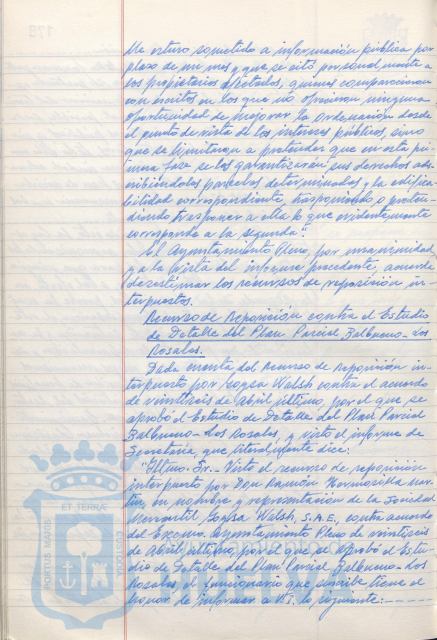 se estuvo sometido a información pública por
plazo de un mes y que se citó personalmente a
los propietarios afectados, quienes comparecieron
con escritos en los que no ofrecieron ninguna
oportunidad de mejorar la ordenación desde
el punto de vista de los intereses públicos, sino
que se limitaron a pretender que en esta pri-
mera fase se les garantizaran sus derechos ads-
cribiéndolos parcelas determinadas y la edifica-
bilidad correspondiente, trasponiendo o preten-
diendo trasponer a ella lo que evidentemente
corresponde a la segunda".
El Ayuntamiento Pleno, por unanimidad
y a la vista del informe precedente, acuerda
desestimar los recursos de reposición in-
terpuestos.
Recurso de Reposición contra el Estudio
de Detalle del Plan Parcial Balbueno-Los
Rosales.
Dada cuenta del recurso de reposición in-
terpuesto por Walsh contra el acuerdo
de veintiseis de Abril último, por el que se
aprobó el Estudio de Detalle del Plan Parcial
Balbueno-Los Rosales, y visto el informe de
Secretaría, que literalmente dice:
"Iltmo. Sr.- Visto el recurso de reposición
interpuesto por Don Ramón Hermosilla
en nombre y representación de la Sociedad
Mercantil Walsh, S.A.E., contra acuerdo
del Excmo. Ayuntamiento Pleno de veintiseis
de Abril último, por el que se aprobó el Estu-
dio de Detalle del Plan Parcial Balbueno-Los
Rosales, el funcionario que suscribe tiene el
honor de informar a V.I. lo siguiente:-----
PORTUS MARIS
ET TERRAE
CUSTODIA